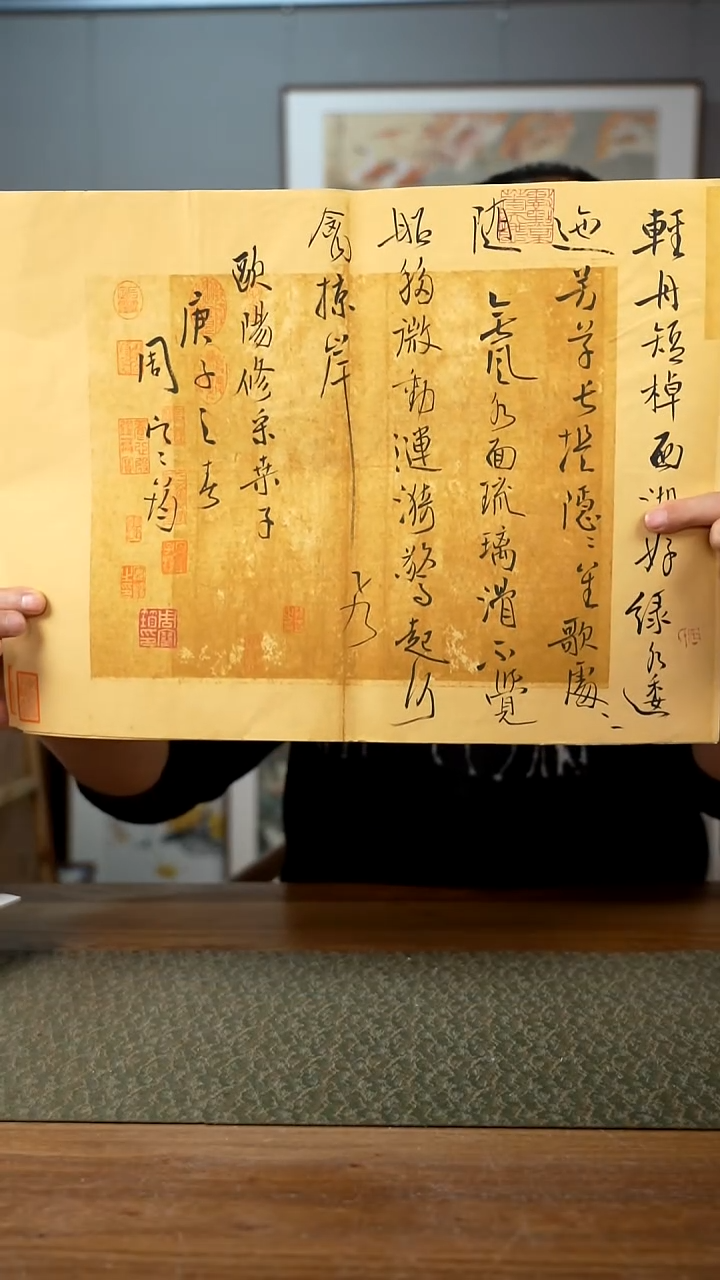 輕舟短棹西湖好綠水逶
迤芳草長堤隱々笙歌處々
随無風水面琉璃滑不覺
船移微動漣漪驚起沙
禽掠岸飛
歐陽修采桑子
庚子之春
周